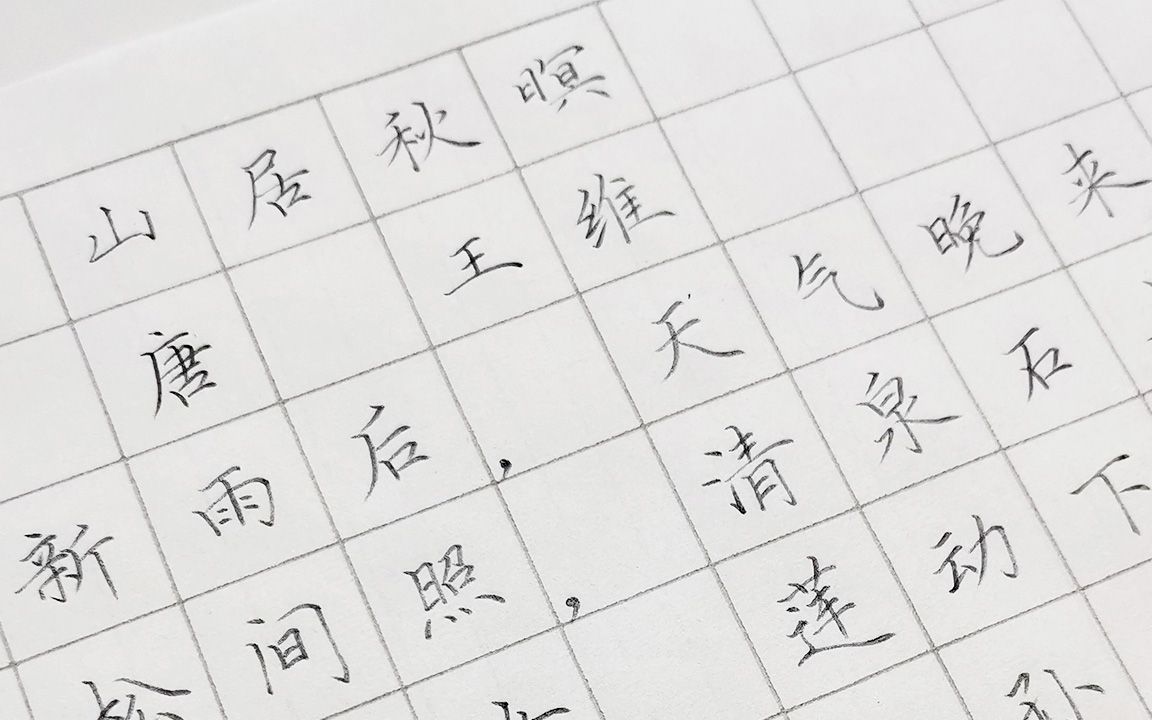 山居秋暝
唐 王维
新雨后， 天气晚来
松间照， 清泉石
莲动下